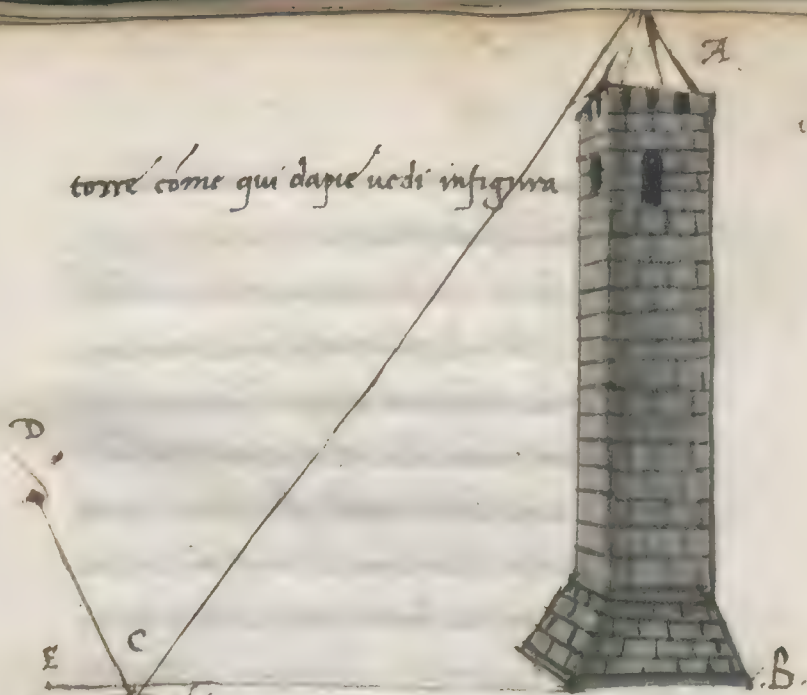 A
torre come qui dapie uedi infigura
D
C
E
B